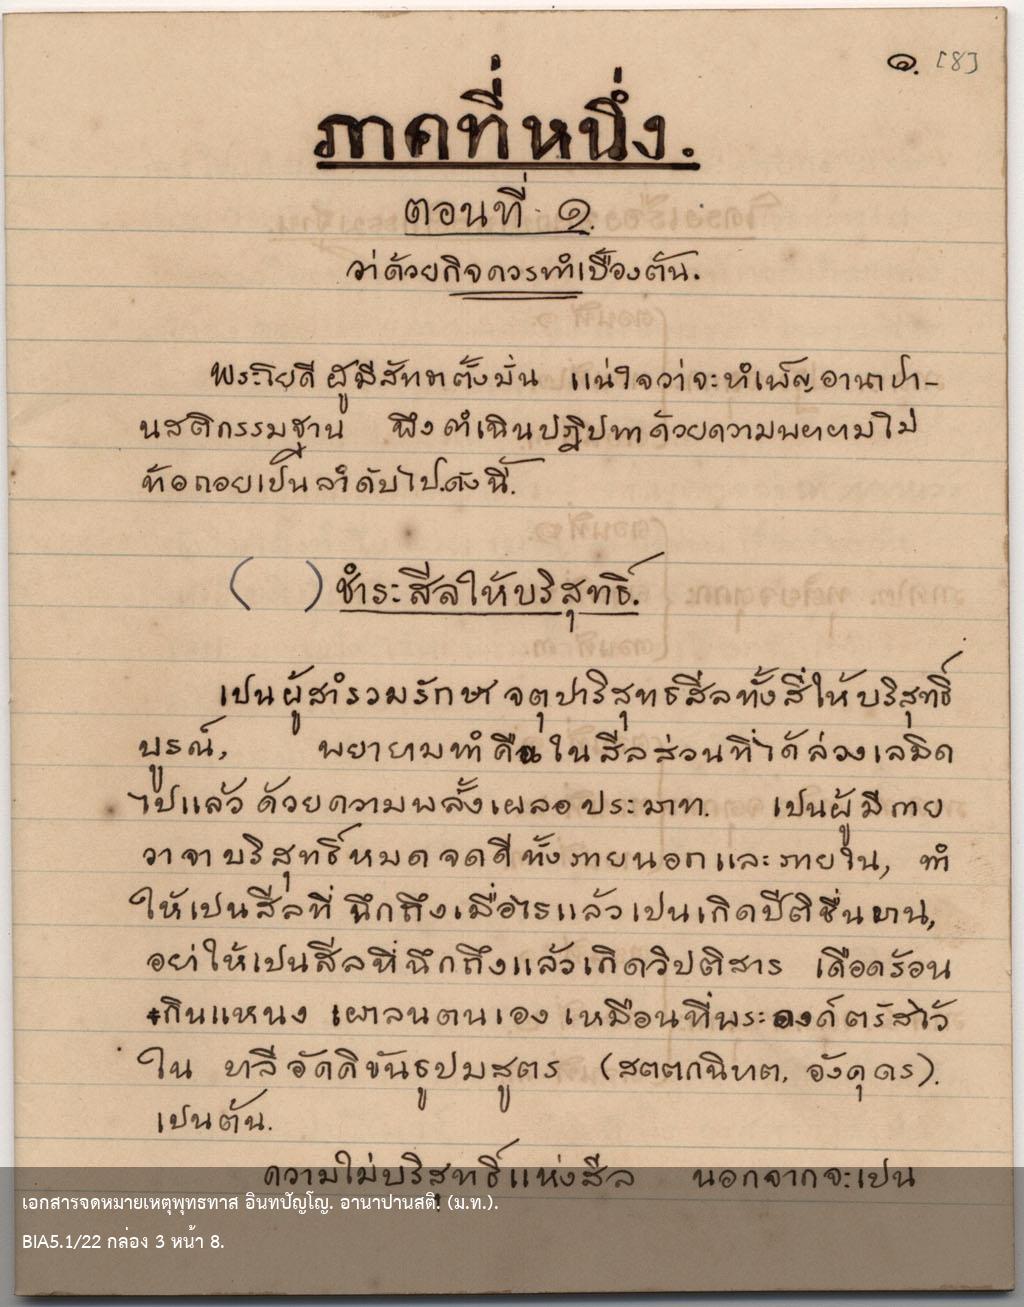 ๑. [8]
ภาคที่หนึ่ง.
ตอนที่ ๑.
ว่าด้วยกิจควรทำเบื้องต้น.
พระโยคี ผู้มีสัทธาตั้งมั่น แน่ใจว่าจะทำเพ็ญอานาปา-
นสติกรรมฐาน พึงดำเนินปฏิปทาด้วยความพยายามไม่
ท้อถอยเป็นลำดับไป.ดังนี้.
( ) ชำระสีลให้บริสุทธิ์.
เปนผู้สำรวมรักษาจตุปาริสุทธสีลทั้งสี่ให้บริสุทธิ์
บูรณ์, พยายามทำคืนในสีลส่วนที่ได้ล่วงเลมิด
ไปแล้ว ด้วยความพลั้งเผลอประมาท. เปนผู้มีกาย
วาจาบริสุทธิ์หมดจดดีทั้งภายนอกและภายใน, ทำ
ให้เปนสีลที่ นึกถึงเมื่อไรแล้วเปนเกิดปีติชื่นบาน,
อย่าให้เปนสีลที่นึกถึงแล้วเกิดวิปติสาร เดือดร้อน
กินแหนง เผาลนตนเอง เหมือนที่พระองค์ตรัสไว้
ใน ทลีอัคคิขันธูปมสูตร (สตตกนิบาต. อังคุตร).
เปนต้น.
ความไม่บริสุทธิ์แห่งสีล นอกจากจะเปน
เอกสารจดหมายเหตุพุทธทาส อินทปัญโญ. อานาปานสติ. (ม.ท.).
BIA5.1/22 กล่อง 3 หน้า 8.